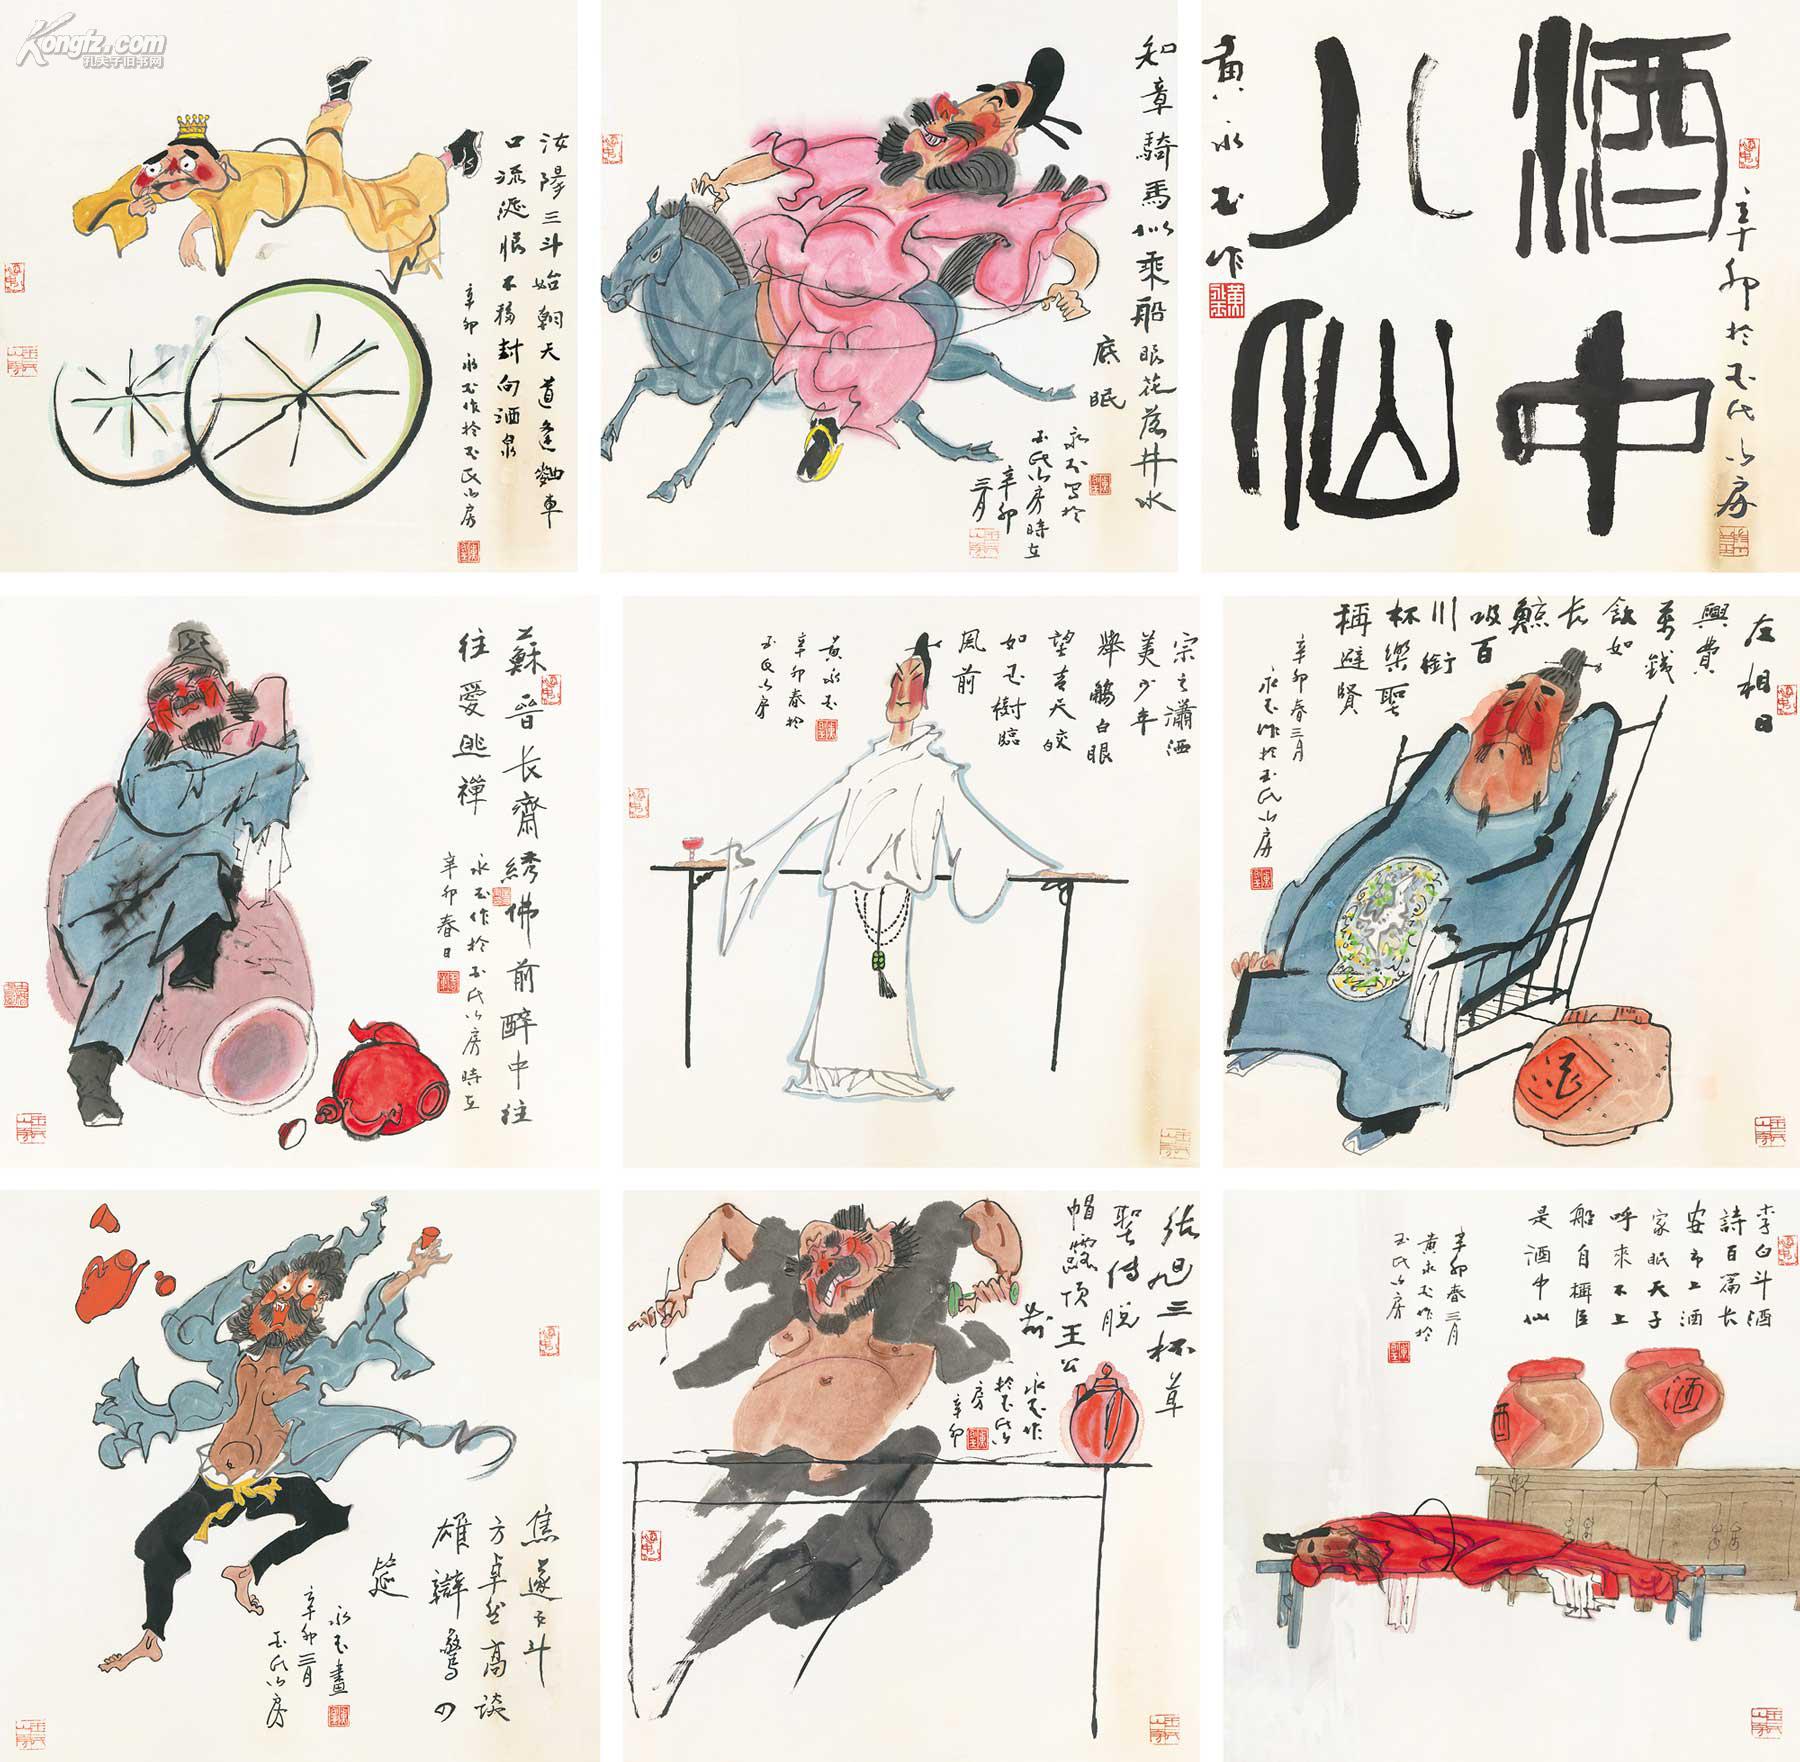 Kongfz.com
孔夫子旧书网
汝陽三斗始朝天道逢麯車
口流涎恨不移封向酒泉
辛卯 永玉作於玉氏山房
知章騎馬似乘船眼花落井水
底眠
永玉寫於
玉氏山房時在
辛卯
三月
酒中
八仙
辛卯於玉氏山房
黄永玉作
蘇晉长齋绣佛前醉中往
往愛逃禪
永玉作於玉氏山房時在
辛卯春日
宗之瀟洒
美少年
舉觴白眼
望青天皎
如玉樹臨
風前
黄永玉
辛卯春於
玉氏山房
左相日
興費
萬錢
飲如
长
鯨
吸百
川銜
杯樂聖
稱避賢
辛卯春三月
永玉作於玉氏山房
焦遂五斗
方卓然高談
雄辯驚四
筵
永玉畫
辛卯三月
玉氏山房
張旭三杯草
聖傳脱
帽露頂王公
前
永玉作
於玉氏山
房
辛卯
李白斗酒
詩百篇长
安市上酒
家眠天子
呼來不上
船自稱臣
是酒中仙
辛卯春三月
黄永玉作於
玉氏山房
酒
酒
酒